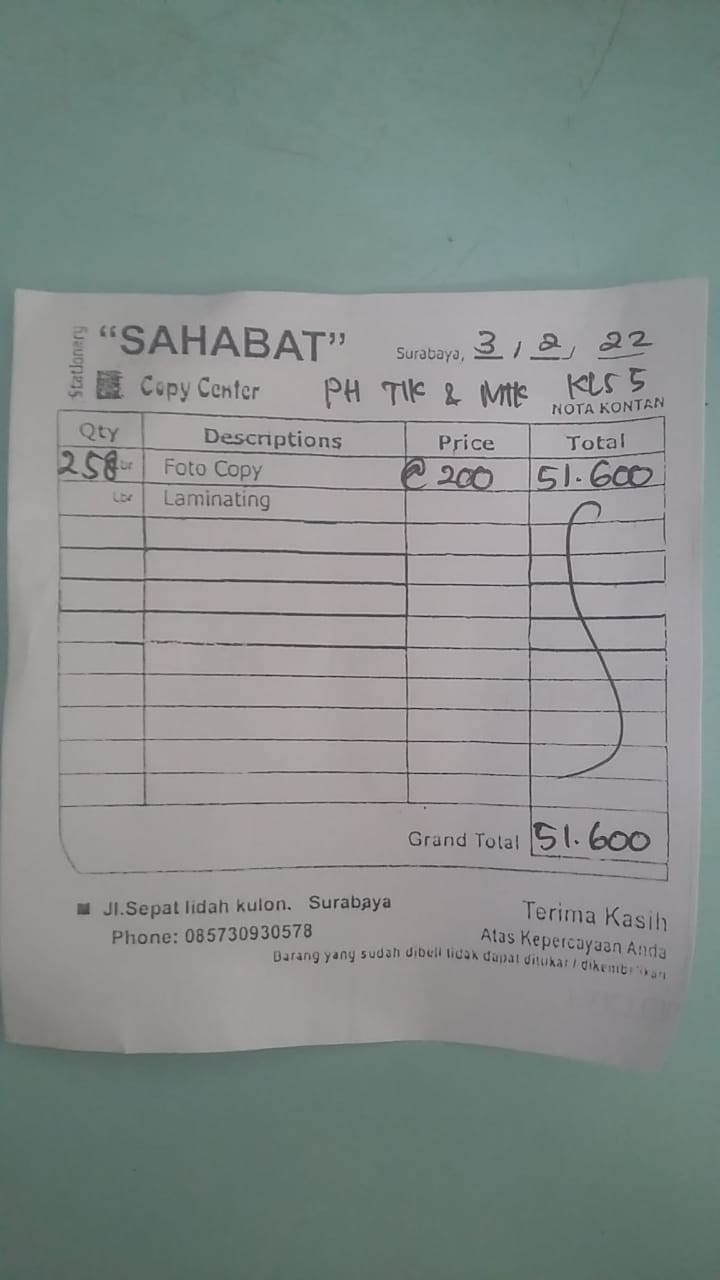 Stationery
"SAHABAT"
Surabaya, 3, 2, 22
Copy Center PH TIK & MTK KLS 5
NOTA KONTAN
Qty Descriptions Price Total
258 Lbr Foto Copy @ 200 51.600
Lbr Laminating
Grand Total 51.600
Jl.Sepat lidah kulon. Surabaya
Phone: 085730930578
Terima Kasih
Atas Kepercayaan Anda
Barang yang sudah dibeli tidak dapat ditukar / dikembalikan